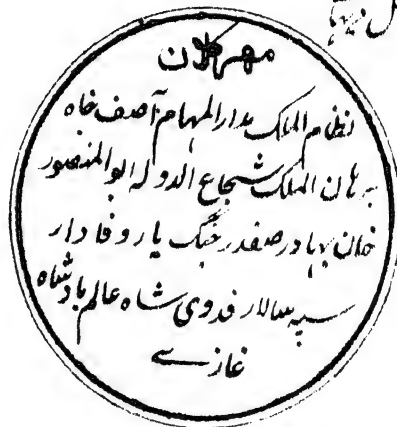 مهر کلان
نظام الملک مدارالمهام آصف جاه
برهان الملک شجاع الدوله ابوالمنصور
خان بهادر صفدر جنگ یار وفادار
سپه سالار فدوی شاه عالم بادشاه
غازے